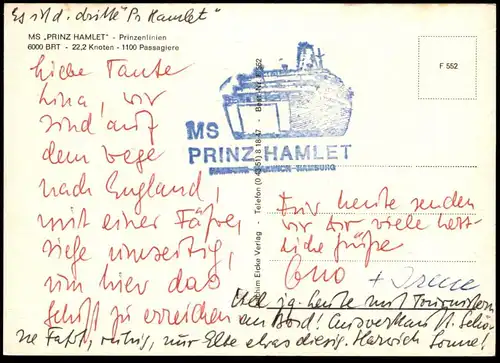 Es ist d. dritte "Pr. Hamlet"
MS „PRINZ HAMLET" - Prinzenlinien
6000 BRT - 22,2 Knoten - 1100 Passagiere
F 552
liebe Tante
Lina, wir
sind auf
dem wege
nach England,
mit einer Fähre,
siehe umseitig,
um hier das
Schiff zu erreichen
MS
PRINZ HAMLET
HAMBURG-HARWICH-HAMBURG
Eicke Verlag - Telefon (0 43 51) 8 18 47 - Best.-Nr.
Für heute senden
wir Dir viele herz-
liche grüße
Otto
+ Irene
heute mit Touristern
an Bord! Ausverkauft. Schö-
ne Fahrt, ruhig, nur Elbe etwas diesig. Harwich Sonne!